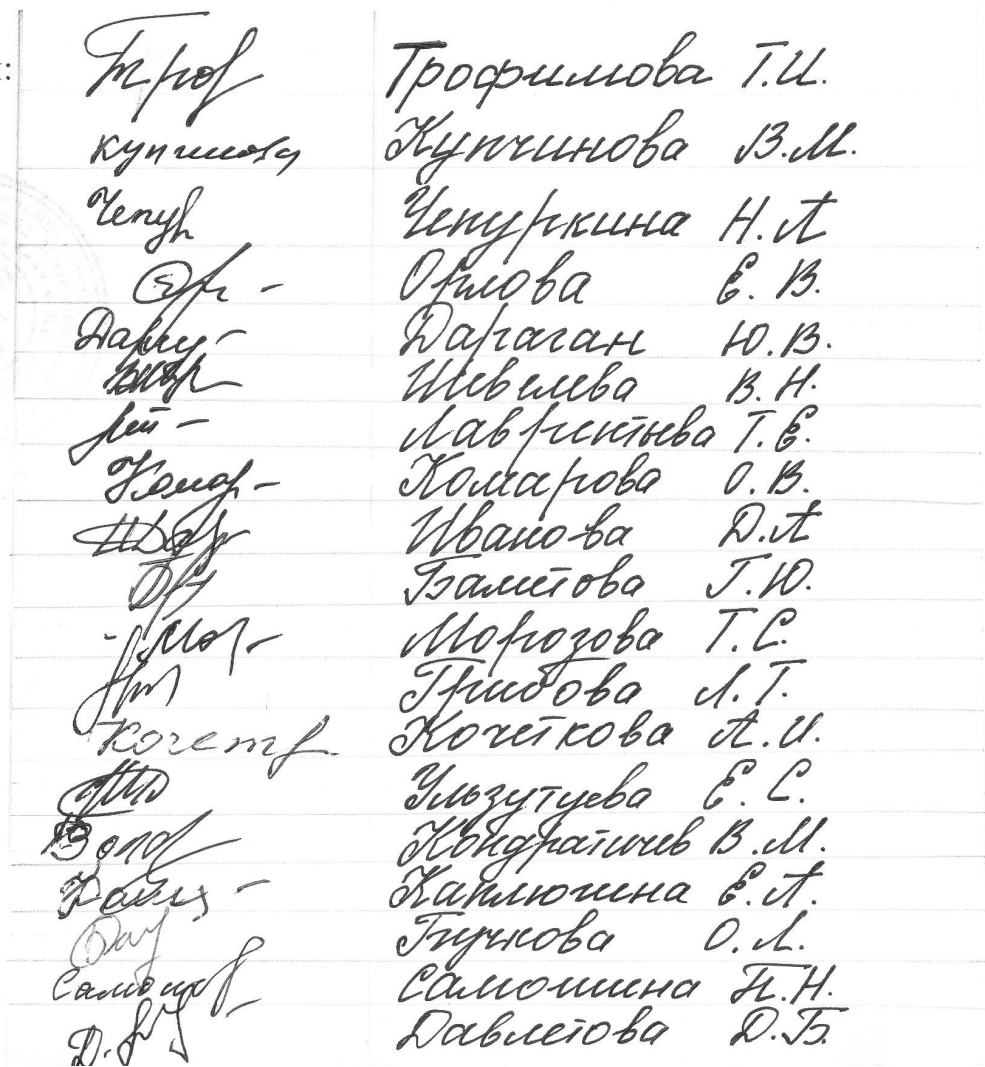 Трофимова Т.И.
купчинова Купчинова В.М.
Чепур Чепуркина Н.А
Орлова Е.В.
Дараган Ю.В.
Шевелева В.Н.
Лаврентьева Т.Е.
Комар Комарова О.В.
Иванова Д.А
Баметова Г.Ю.
Мор Морозова Т.С.
Грибова Л.Т.
Кочет Кочеткова А.И.
Ульзутуева Е.С.
Кондратичев В.М.
Каплючина Е.А.
О.Л.
Самошина П.Н.
Давлетова Д.Б.